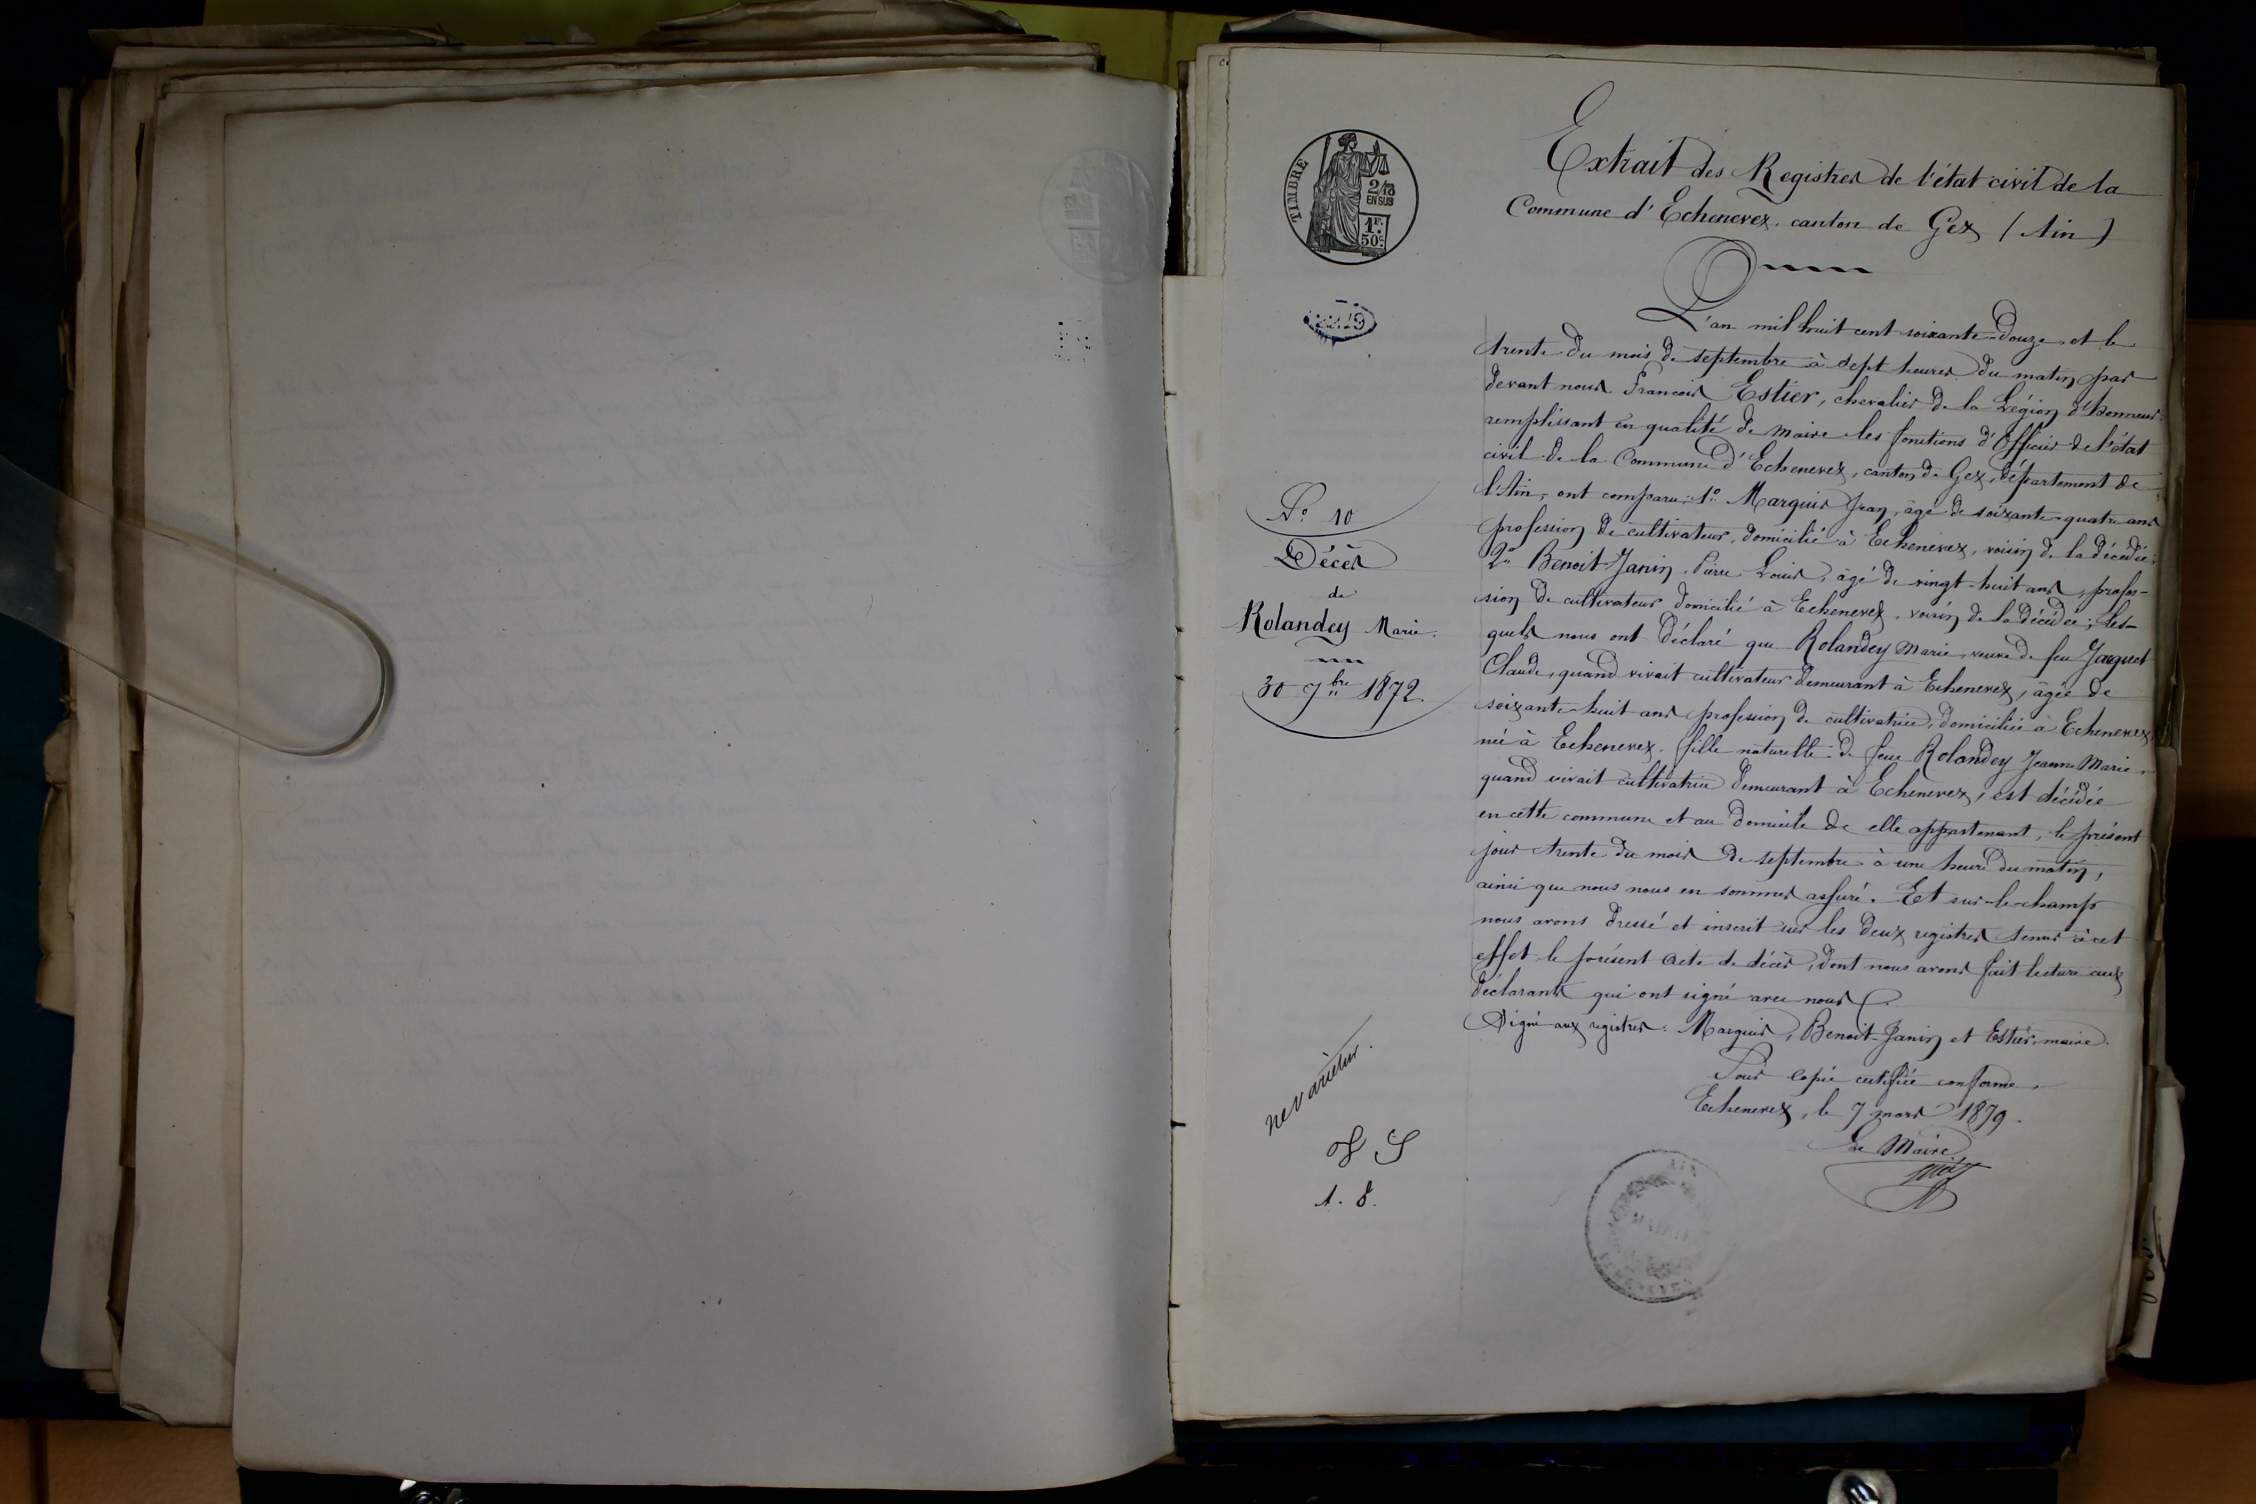 Extrait des Registres de l'état civil de la
Commune d'Echenevex. canton de Gex (Ain)
TIMBRE
2/10
EN SUS
1F.
50c
L'an mil huit cent soixante-douze et le
trente du mois de septembre à sept heures du matin par
devant nous François Estier, chevalier de la Légion d'honneur
remplissant en qualité de maire les fonctions d'Officier de l'état
civil de la Commune d'Echenevex, canton de Gex, département de
l'Ain, ont comparu: 1° Marquis Jean, âgé de soixante-quatre ans
profession de cultivateur, domicilié à Echenevex, voisin de la décédée;
2° Benoit-Janin, Pierre Louis, âgé de vingt-huit ans, profes-
sion de cultivateur domicilié à Echenevex, voisin de la décédée; Les-
quels nous ont déclaré que Rolandey Marie, veuve de feu Jacquet
Claude, quand vivait cultivateur demeurant à Echenevex, âgée de
soixante-huit ans profession de cultivatrice, domiciliée à Echenevex,
née à Echenevex. fille naturelle de feue Rolandey Jeanne Marie,
quand vivait cultivatrice demeurant à Echenevex, est décédée
en cette commune et au domicile de elle appartenant, le présent
jour trente du mois de septembre à une heure du matin,
ainsi que nous nous en sommes assuré. Et sur-le-champ
nous avons dressé et inscrit sur les deux registres tenus à cet
effet le présent acte de décès, dont nous avons fait lecture aux
déclarants qui ont signé avec nous.
Signé aux registres: Marquis, Benoit-Janin et Estier, maire.
Pour copie certifiée conforme,
Echenevex, le 7 mars 1879.
Le Maire
N° 10
Décès
de
Rolandey Marie.
30 7bre 1872.
ne varietur.